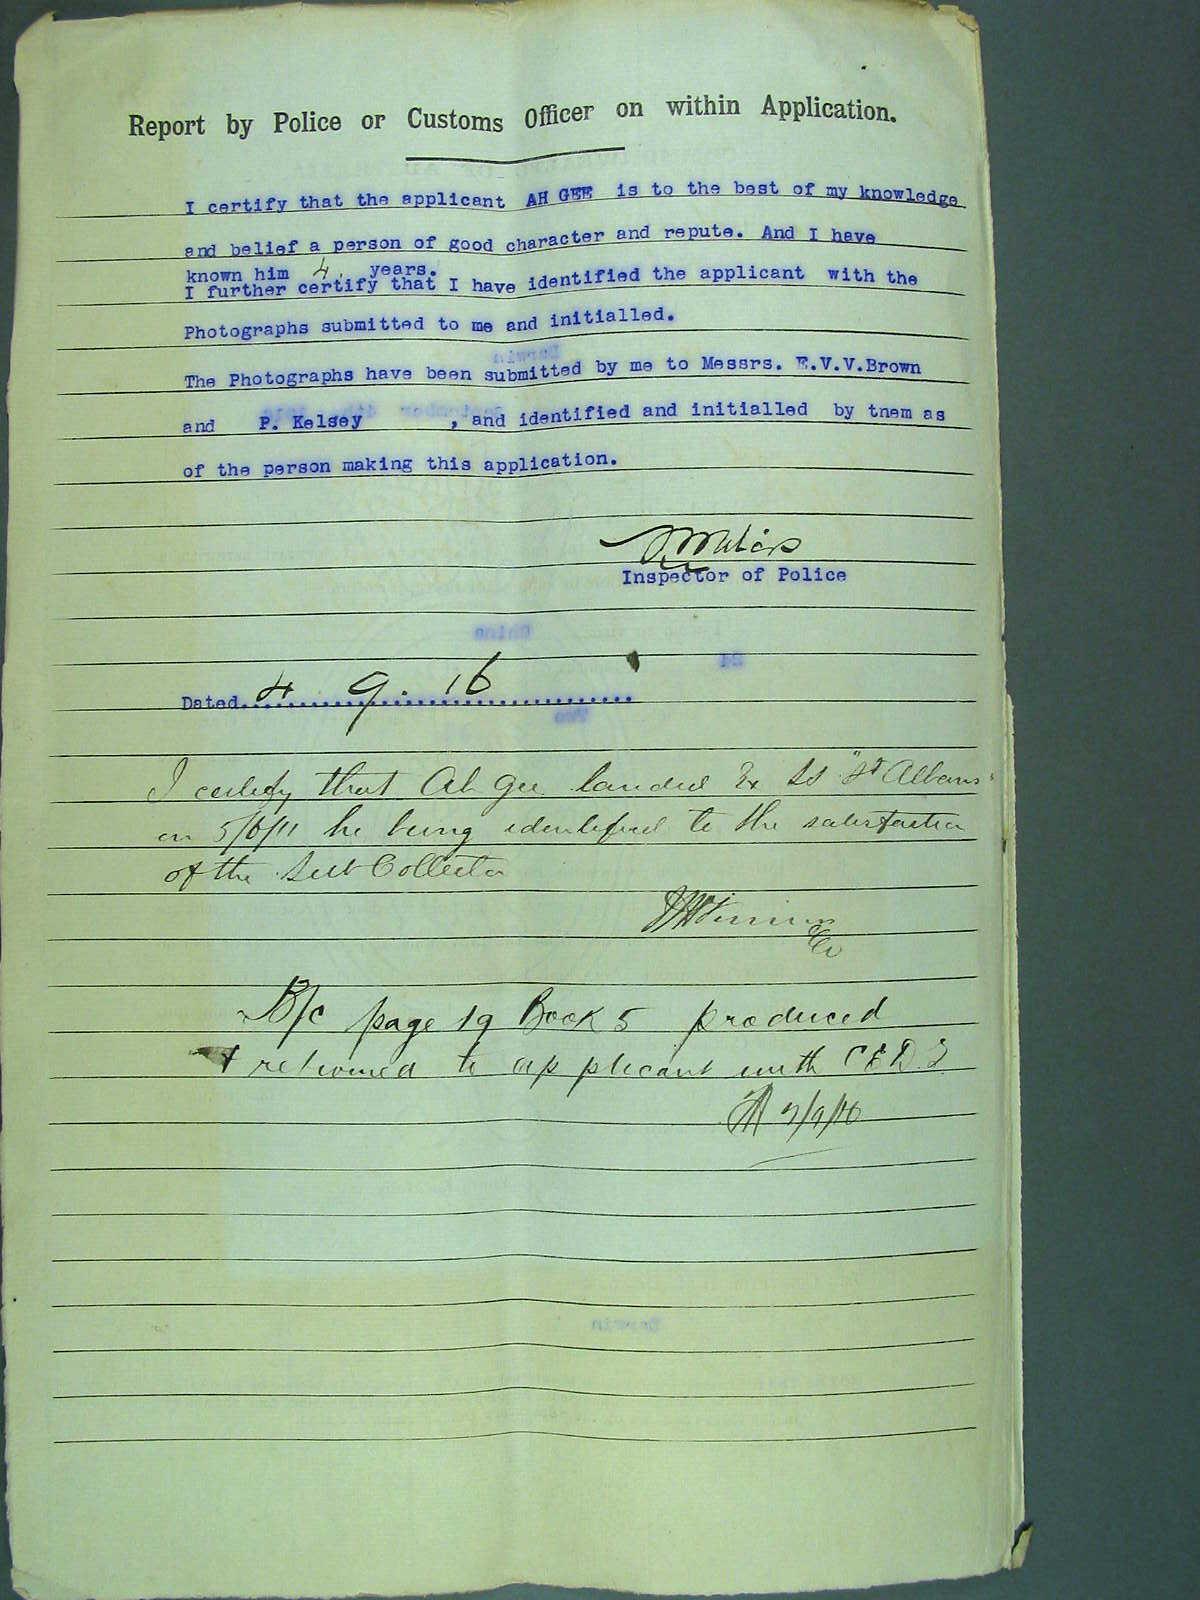 Report by Police or Customs Officer on within Application.
I certify that the applicant AH GEE is to the best of my knowledge
and belief a person of good character and repute. And I have
known him 4. years.
I further certify that I have identified the applicant with the
Photographs submitted to me and initialled.
The Photographs have been submitted by me to Messrs. E.V.V.Brown
and P. Kelsey , and identified and initialled by tnem as
of the person making this application.
Inspector of Police
Dated 4. 9. 16
I certify that Ah Gee landed Ex SS "St Albans"
on 5/6/11 he being identified to the satisfaction
of the Sub Collector
B/c page 19 Book 5 produced
& returned to applicant with C E D T
7/9/16